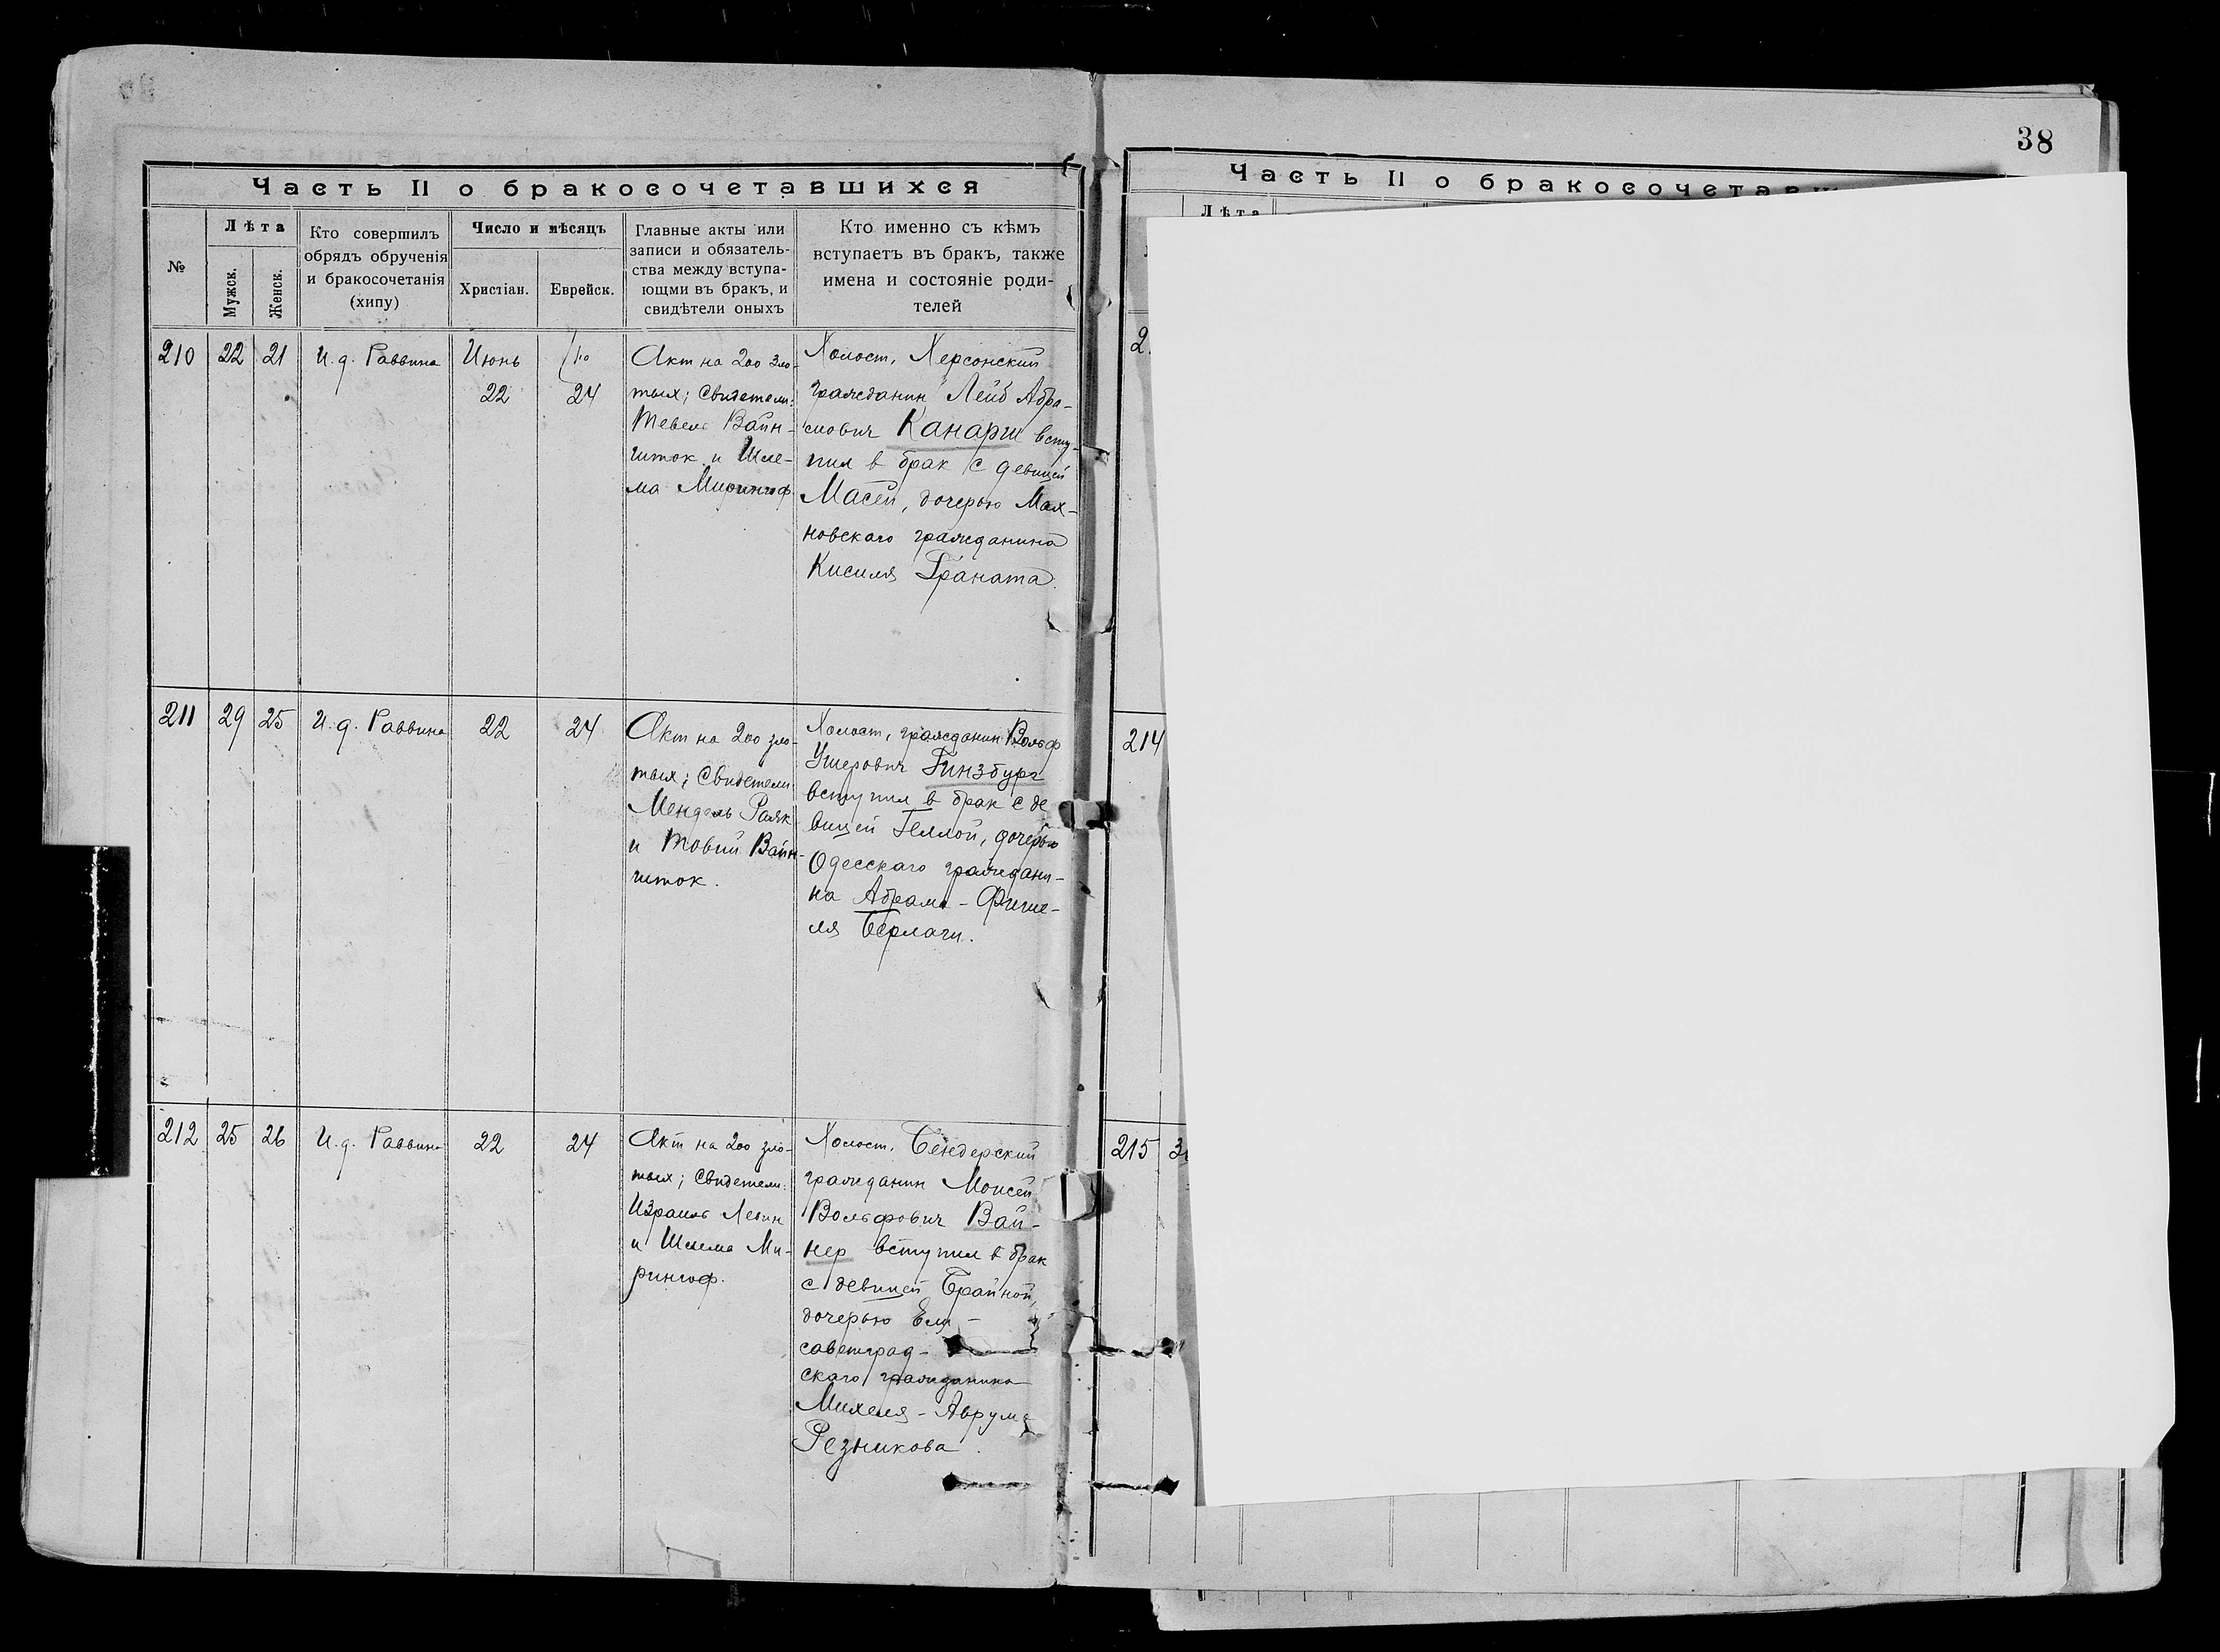 38
Часть II о бракосочетавшихся
№
Лѣта
Мужск.
Женск.
Кто совершилъ
обрядъ обрученія
и бракосочетанія
(хипу)
Число и мѣсяцъ
Христіан.
Еврейск.
Главные акты или
записи и обязатель-
ства между вступа-
ющми въ бракъ, и
свидѣтели оныхъ
Кто именно съ кѣмъ
вступаетъ въ бракъ, также
имена и состояніе роди-
телей
210
22
21
И.д. Раввина
Июнь
22
24
Акт на 200 зло-
тых; Свидетели:
Тевель Вайн-
шток и Шле-
ма Мирингоф.
Холост, Херсонский
гражданин Лейб Абра-
мович Канарик всту-
пил в брак с девицей
Масей, дочерью Мах-
новскаго гражданина
Кисиля Граната.
211
29
25
И.д. Раввина
22
24
Акт на 200 зло-
тых; Свидетели
Мендель Раяк
и Товий Вайн-
шток.
Холост, гражданин Вольф
Ушерович Гинзбург
вступил в брак с де
вицей Геллой, дочерью
Одесскаго граждани-
на Абрама - Фише-
ля Берлаги.
212
25
26
И.д. Раввина
22
24
Акт на 200 зло-
тых; Свидетели:
Израиль Левин
и Шлема Ми-
рингоф.
Холост, Бендерский
гражданин Моисей
Вольфович Вай-
нер вступил в брак
с девицей Брайной,
дочерью Ели-
саветград-
скаго гражданина
Михеля - Аврума
Резникова.
Часть II о бракосочетавш
Лѣта
2
214
215
3